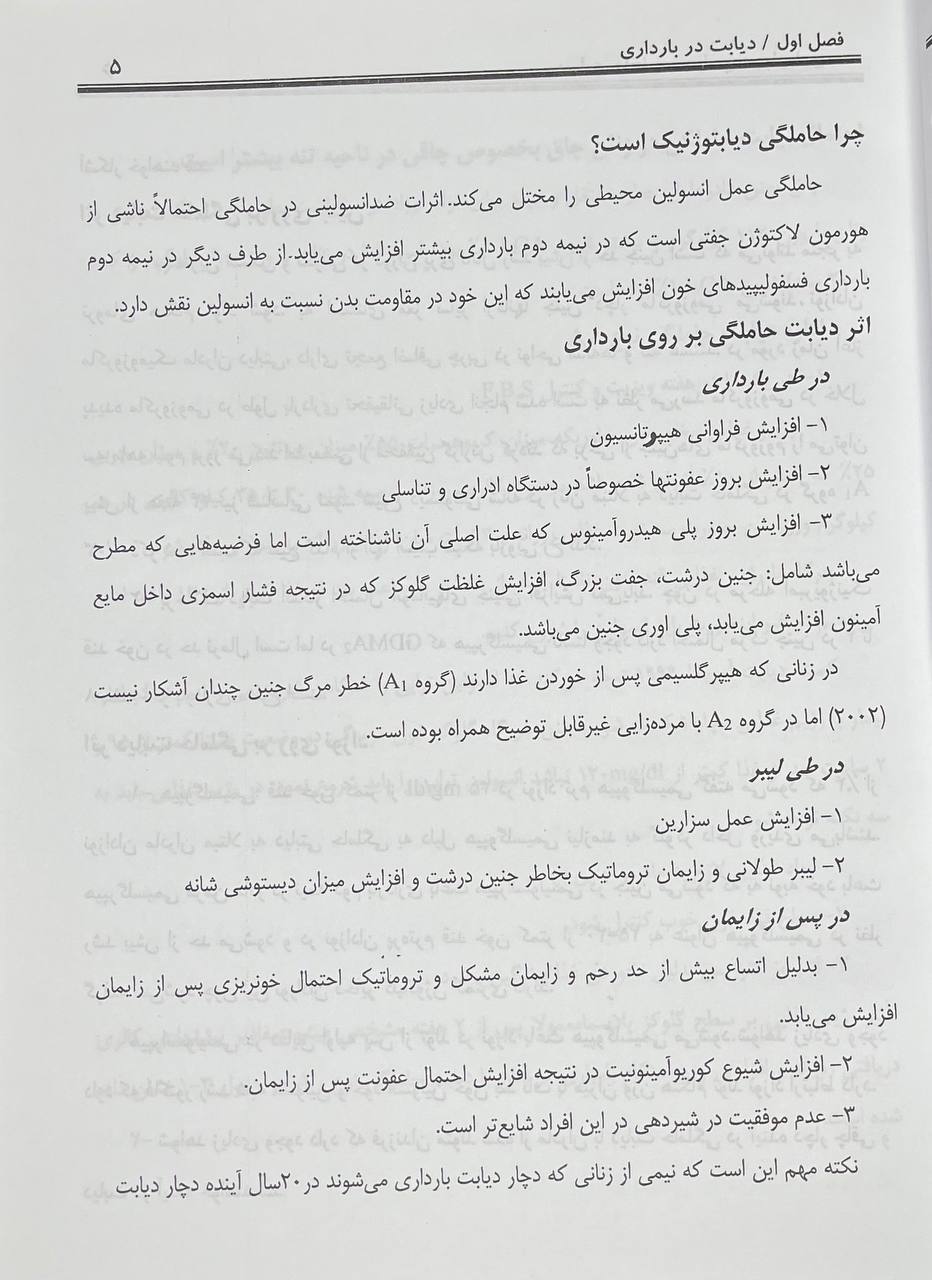 فصل اول / دیابت در بارداری
۵
چرا حاملگی دیابتوژنیک است؟
حاملگی عمل انسولین محیطی را مختل می‌کند. اثرات ضدانسولینی در حاملگی احتمالاً ناشی از
هورمون لاکتوژن جفتی است که در نیمه دوم بارداری بیشتر افزایش می‌یابد. از طرف دیگر در نیمه دوم
بارداری فسفولیپیدهای خون افزایش می‌یابند که این خود در مقاومت بدن نسبت به انسولین نقش دارد.
اثر دیابت حاملگی بر روی بارداری
در طی بارداری
۱- افزایش فراوانی هیپرتانسیون
۲- افزایش بروز عفونتها خصوصاً در دستگاه ادراری و تناسلی
۳- افزایش بروز پلی هیدروآمینوس که علت اصلی آن ناشناخته است اما فرضیه‌هایی که مطرح
می‌باشد شامل: جنین درشت، جفت بزرگ، افزایش غلظت گلوکز که در نتیجه فشار اسمزی داخل مایع
آمینون افزایش می‌یابد، پلی اوری جنین می‌باشد.
در زنانی که هیپرگلسیمی پس از خوردن غذا دارند (گروه A1) خطر مرگ جنین چندان آشکار نیست
(۲۰۰۲) اما در گروه A2 با مرده‌زایی غیرقابل توضیح همراه بوده است.
در طی لیبر
۱- افزایش عمل سزارین
۲- لیبر طولانی و زایمان تروماتیک بخاطر جنین درشت و افزایش میزان دیستوشی شانه
در پس از زایمان
۱- بدلیل اتساع بیش از حد رحم و زایمان مشکل و تروماتیک احتمال خونریزی پس از زایمان
افزایش می‌یابد.
۲- افزایش شیوع کوریوآمینونیت در نتیجه افزایش احتمال عفونت پس از زایمان.
۳- عدم موفقیت در شیردهی در این افراد شایع‌تر است.
نکته مهم این است که نیمی از زنانی که دچار دیابت بارداری می‌شوند در۲۰سال آینده دچار دیابت